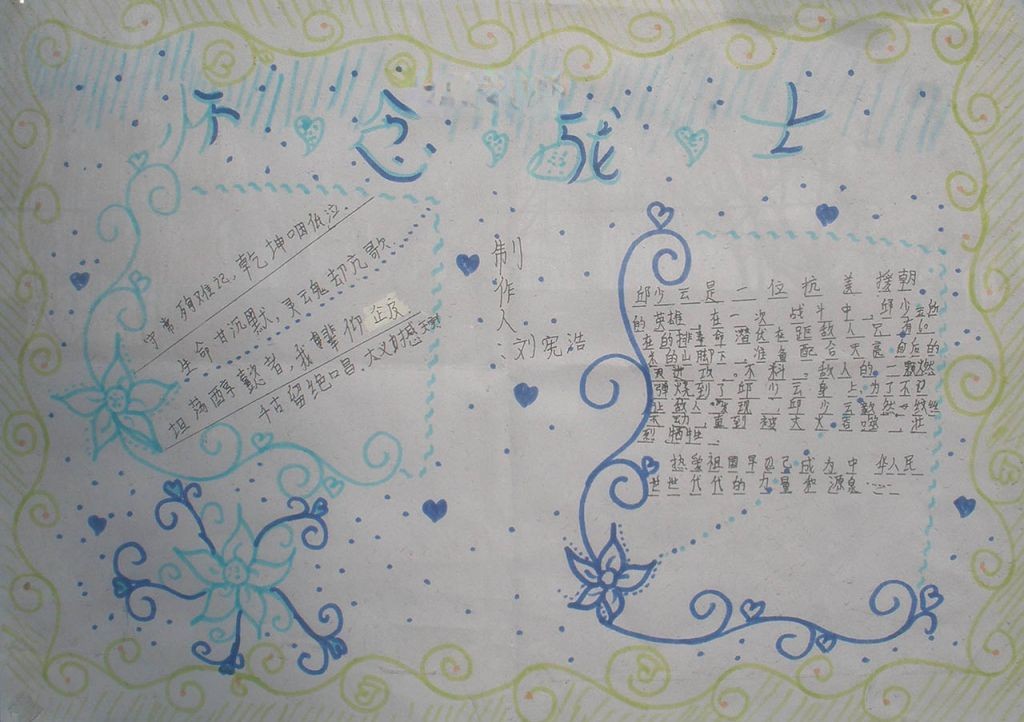 怀念战士
守常殉难记，乾坤咽低泣。
生命甘沉默，灵云魂却亢歌
坦荡醇懿者，我辈仰
千古留绝唱，大义
制作人：刘宪浩
邱少云是一位抗美援朝
的英雄，在一次战斗中，邱少云所
在的排奉命潜伏在距敌人只有60
米的山脚下，准备配合天黑自后的
进攻。不料，敌人的一颗燃
弹烧到了邱少云身上为了不
让敌人发现，邱少云毅然一丝丝
不动，直到被大火吞噬，壮
烈牺牲。
热爱祖国早已成为中华人民
世世代代的力量和源泉……